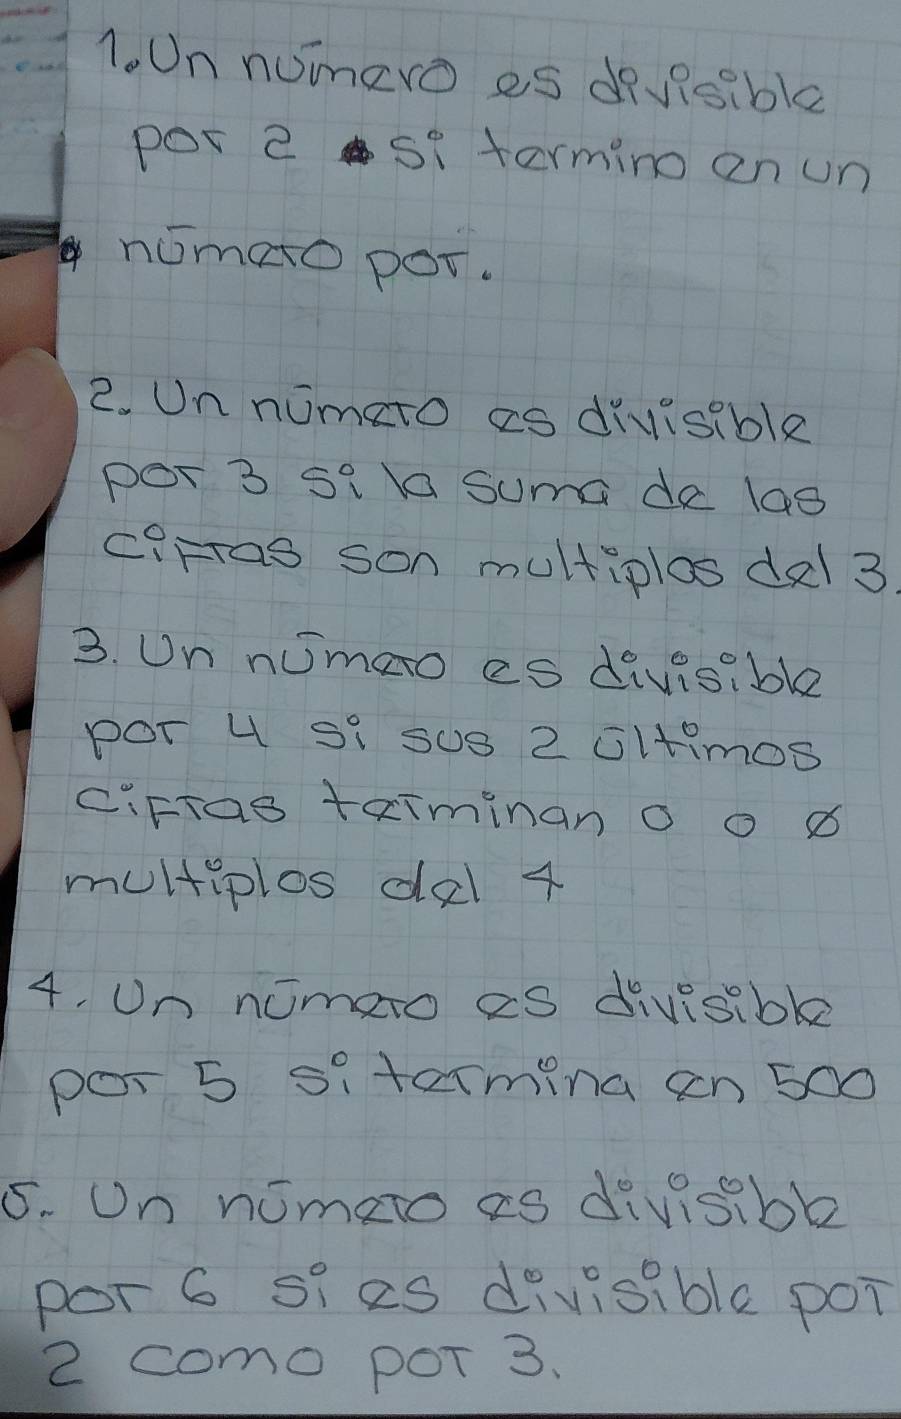 1. Un número es divisible
por 2 si termino en un
número por.
2. Un número es divisible
por 3 si la suma de las
cifras son multiplos del 3.
3. Un número es divisible
por 4 si sus 2 últimos
cifras terminan o o
multiplos del 4
4. Un número es divisible
por 5 si termina en 5 o 0
5. Un número es divisible
por 6 si es divisible por
2 como por 3.